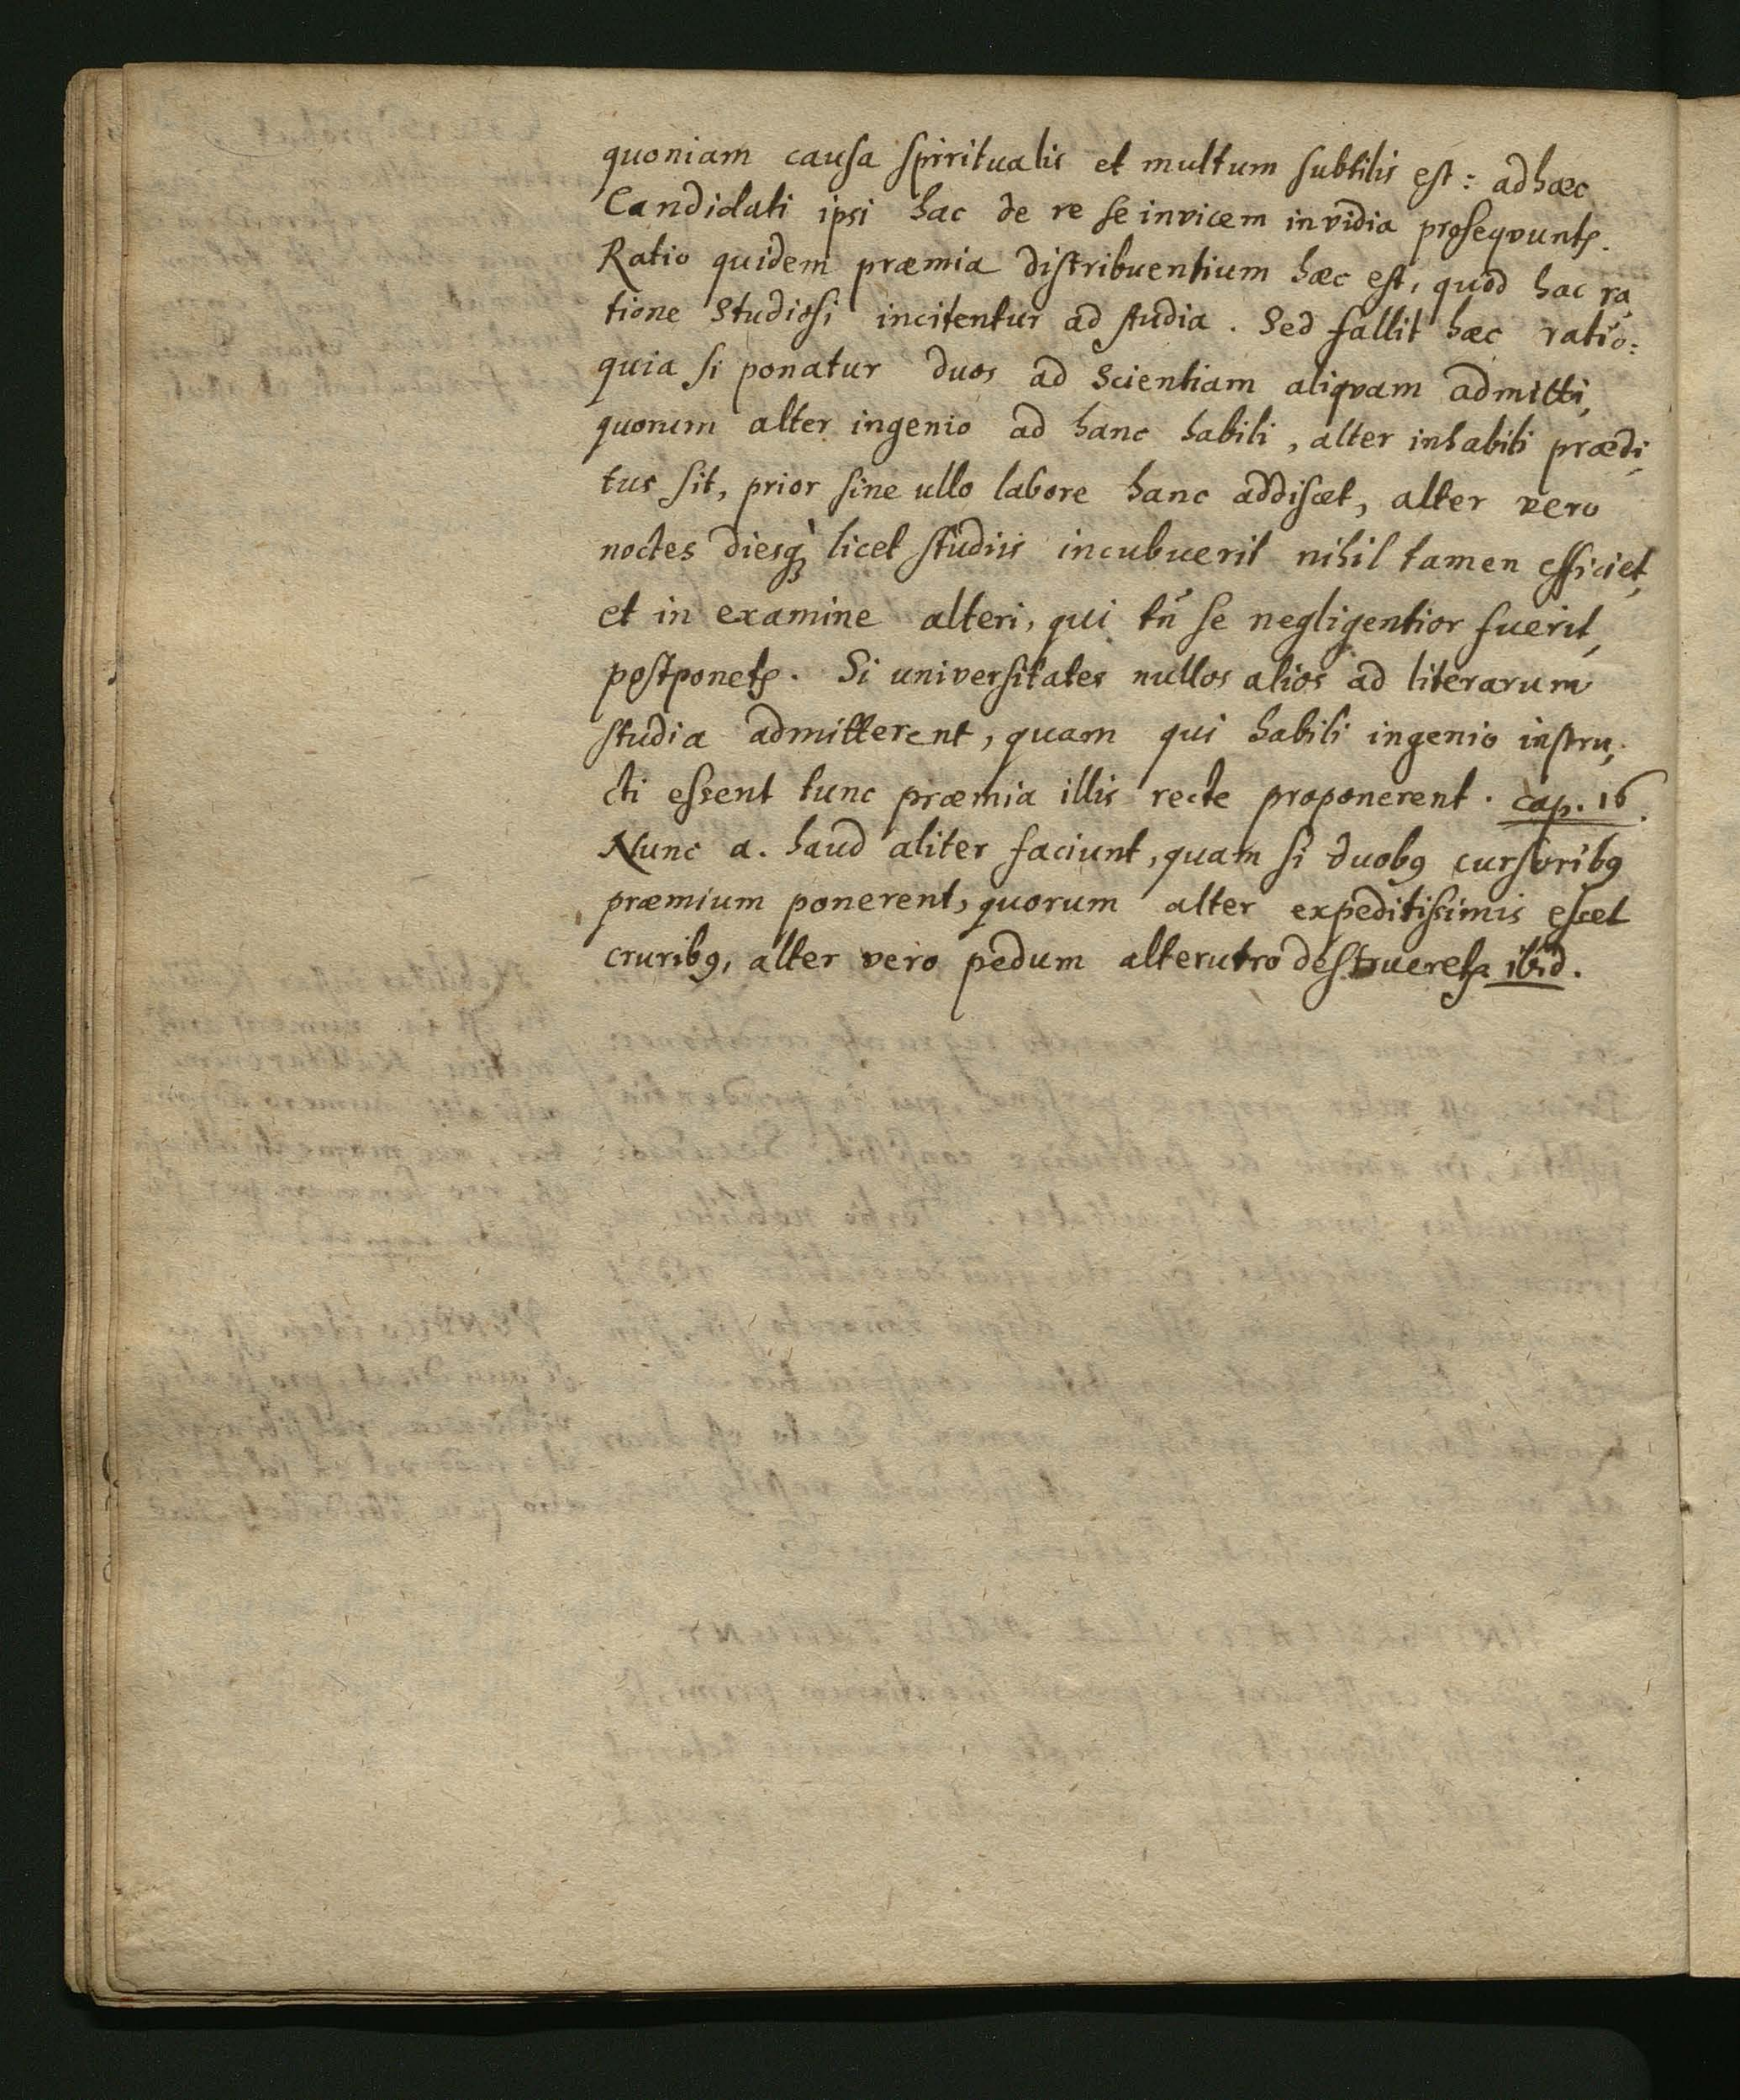 quoniam causa spirritualis et multum subtilis est: adhæc
Candidati ipsi hac de re se invicem invidia proseqvuntr.
Ratio quidem præmia distribuentium hæc est, quòd hac ra,
tione Studiosi incitentur ad studia. Sed fallit hæc ratio:
quia si ponatur duos ad Scientiam aliqvam admitti,
quorum alter ingenio ad hanc habili, alter inhabili prædi,
tus sit, prior sine ullo labore hanc addiscet, alter vero
noctes diesq́; licet studiis incubuerit nihil tamen efficiet,
et in examine alteri, qui tñ se negligentior fuerit,
postponetr. Si universitates nullos alios ad literarum
studia admitterent, quam qui habili ingenio instru,
cti essent tunc præmia illis recte proponerent. cap. 16.
Nunc a. haud aliter faciunt, quam si duobꝰ cursoribꝰ
præmium ponerent, quorum alter expeditissimis esset
cruribꝰ, alter vero pedum alterutro destrueretr ibid.